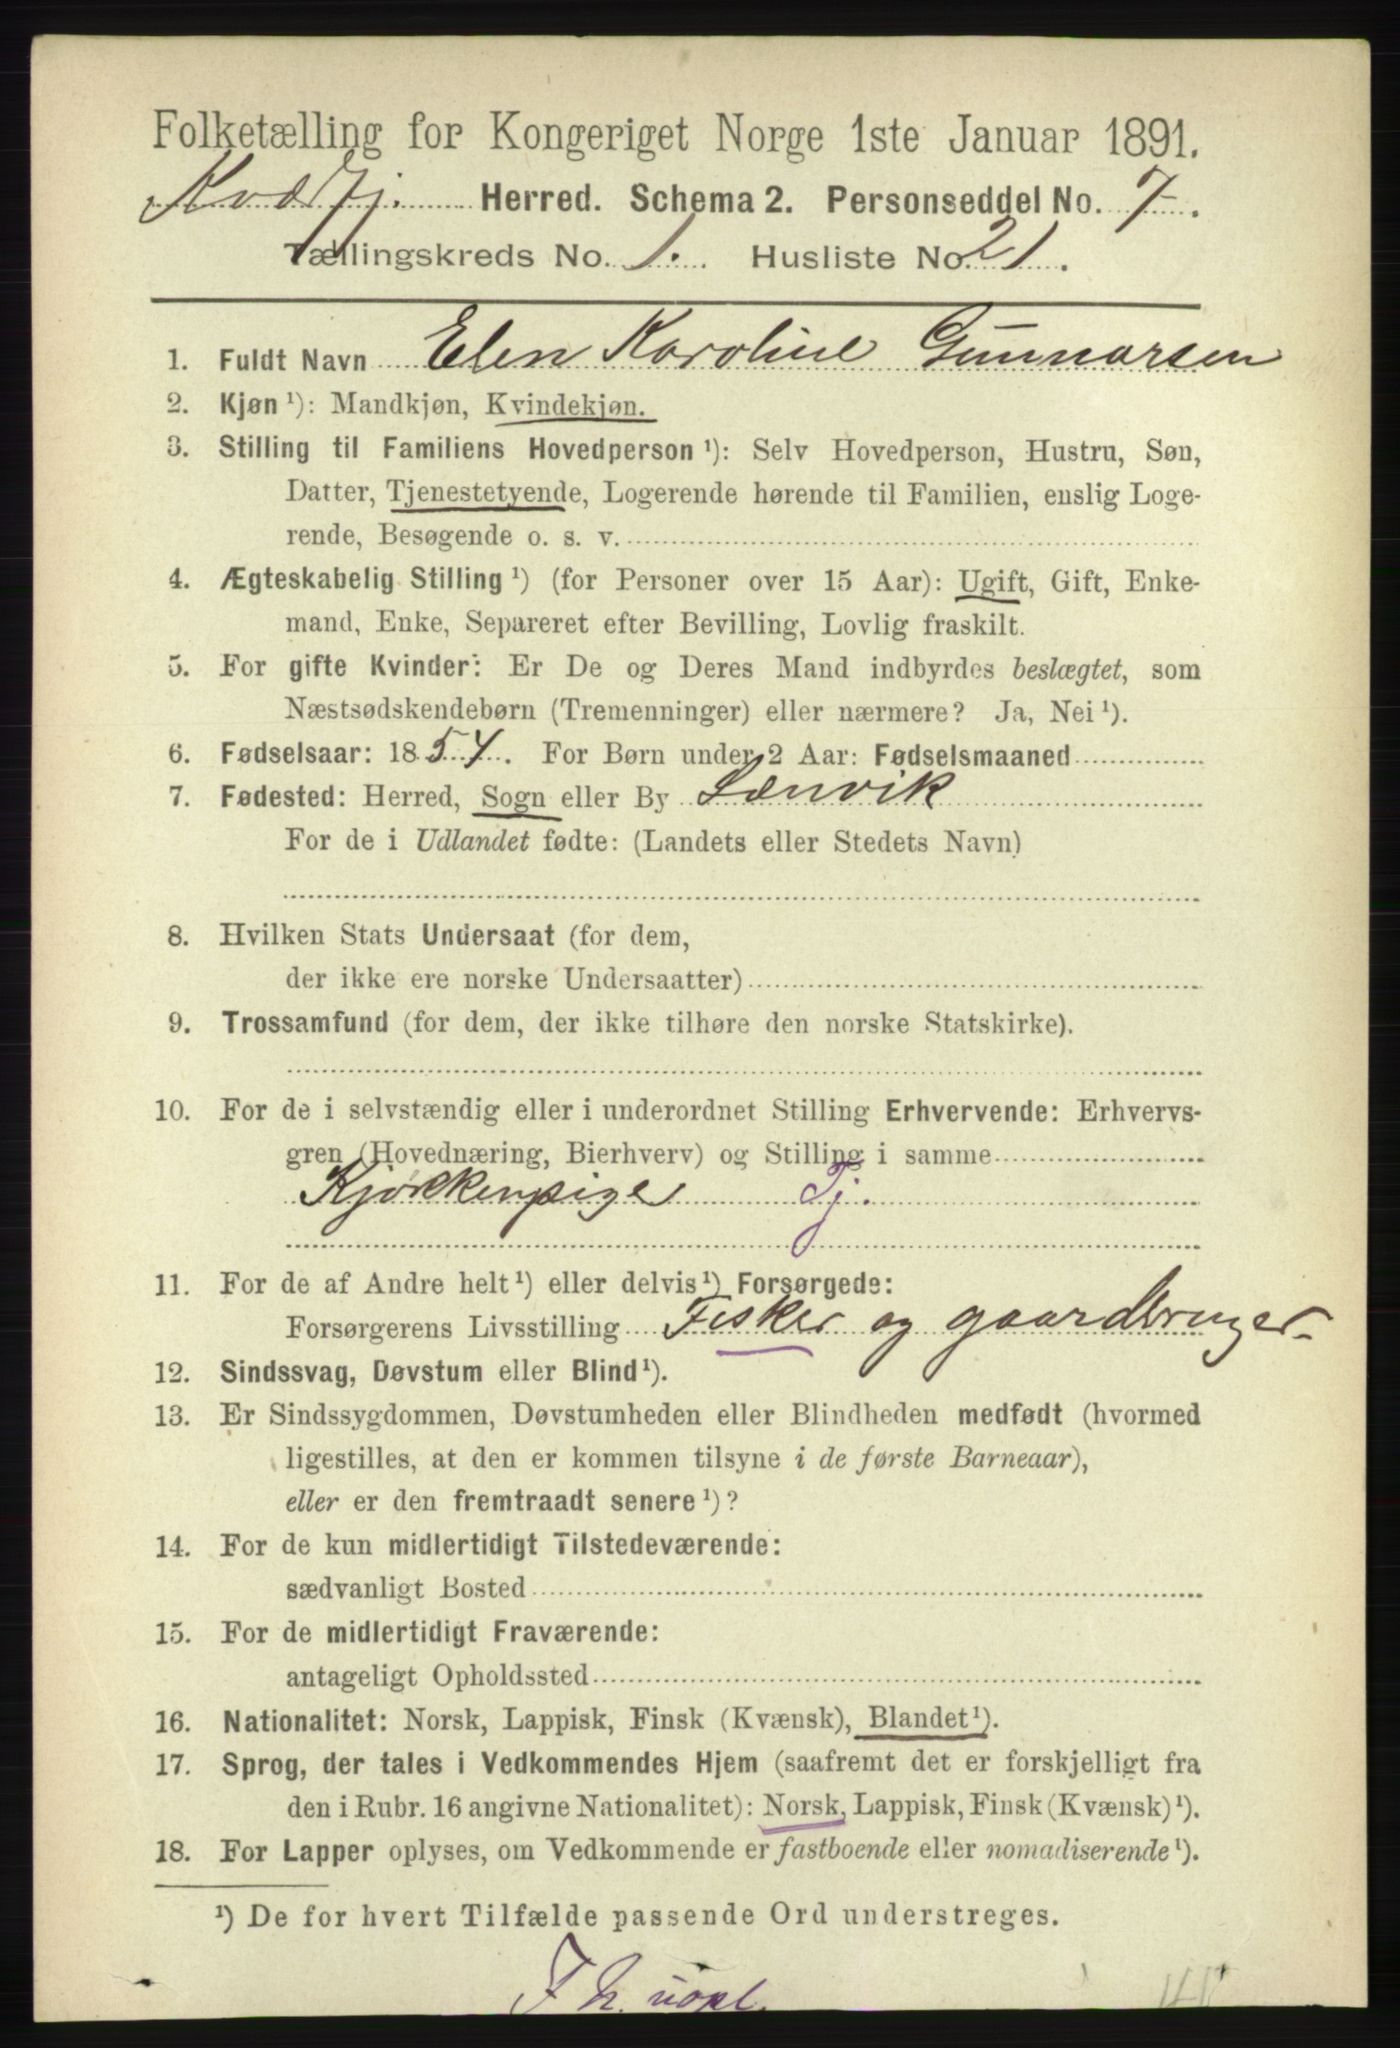 Folketælling for Kongeriget Norge 1ste Januar 1891.
Kvæfj. Herred. Schema 2. Personseddel No. 7.
Tællingskreds No. 1. Husliste No. 21.
1. Fuldt Navn Elen Karoline Gunnarsen
2. Kjøn ¹): Mandkjøn, Kvindekjøn.
3. Stilling til Familiens Hovedperson ¹): Selv Hovedperson, Hustru, Søn,
Datter, Tjenestetyende, Logerende hørende til Familien, enslig Loge-
rende, Besøgende o. s. v.
4. Ægteskabelig Stilling ¹) (for Personer over 15 Aar): Ugift, Gift, Enke-
mand, Enke, Separeret efter Bevilling, Lovlig fraskilt.
5. For gifte Kvinder: Er De og Deres Mand indbyrdes beslægtet, som
Næstsødskendebørn (Tremenninger) eller nærmere? Ja, Nei ¹).
6. Fødselsaar: 1854. For Børn under 2 Aar: Fødselsmaaned
7. Fødested: Herred, Sogn eller By Lænvik
For de i Udlandet fødte: (Landets eller Stedets Navn)
8. Hvilken Stats Undersaat (for dem,
der ikke ere norske Undersaatter)
9. Trossamfund (for dem, der ikke tilhøre den norske Statskirke).
10. For de i selvstændig eller i underordnet Stilling Erhvervende: Erhvervs-
gren (Hovednæring, Bierhverv) og Stilling i samme
Kjøkkenpige Tj.
11. For de af Andre helt ¹) eller delvis ¹) Forsørgede:
Forsørgerens Livsstilling Fisker og gaardbruger.
12. Sindssvag, Døvstum eller Blind ¹).
13. Er Sindssygdommen, Døvstumheden eller Blindheden medfødt (hvormed
ligestilles, at den er kommen tilsyne i de første Barneaar),
eller er den fremtraadt senere ¹)?
14. For de kun midlertidigt Tilstedeværende:
sædvanligt Bosted
15. For de midlertidigt Fraværende:
antageligt Opholdssted
16. Nationalitet: Norsk, Lappisk, Finsk (Kvænsk), Blandet ¹).
17. Sprog, der tales i Vedkommendes Hjem (saafremt det er forskjelligt fra
den i Rubr. 16 angivne Nationalitet): Norsk, Lappisk, Finsk (Kvænsk) ¹).
18. For Lapper oplyses, om Vedkommende er fastboende eller nomadiserende ¹).
¹) De for hvert Tilfælde passende Ord understreges.